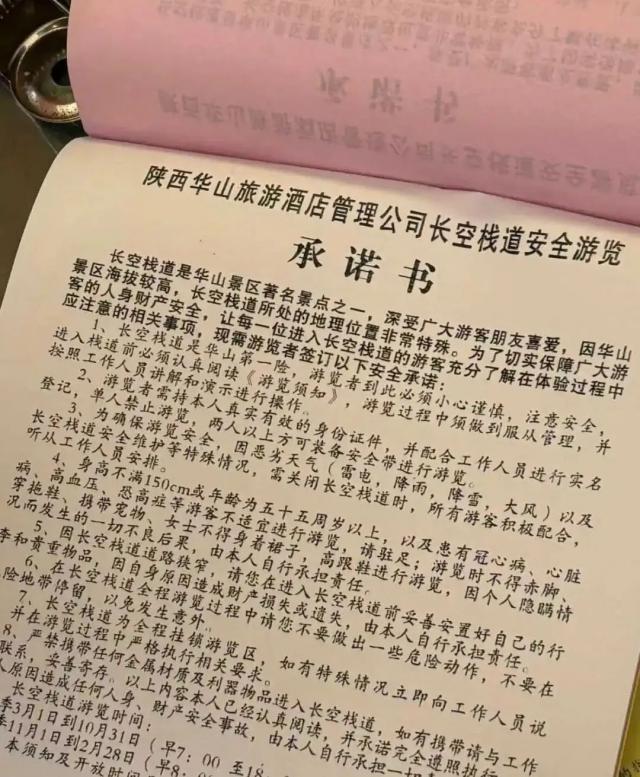 陕西华山旅游酒店管理公司长空栈道安全游览
承诺书
长空栈道是华山景区著名景点之一，深受广大游客朋友喜爱，因华山
景区海拔较高，长空栈道所处的地理位置非常特殊。为了切实保障广大游
客的人身财产安全，让每一位进入长空栈道的游客充分了解在体验过程中
应注意的相关事项，现需游览者签订以下安全承诺：
1、长空栈道是华山第一险，游览者到此必须小心谨慎，注意安全，
进入栈道前必须认真阅读《游览须知》，游览过程中须做到服从管理，并
按照工作人员讲解和演示进行操作。
2、游览者需持本人真实有效的身份证件，并配合工作人员进行实名
登记，单人禁止游览，两人以上方可装备安全带进行游览。
3、为确保游览安全，因恶劣天气（雷电，降雨，降雪，大风）以及
长空栈道安全维护等特殊情况，需关闭长空栈道时，所有游客积极配合，
听从工作人员安排。
4、身高不满150cm或年龄为五十五周岁以上，以及患有冠心病、心脏
病、高血压、恐高症等游客不适宜进行游览，请驻足；游览时不得赤脚、
穿拖鞋、携带宠物、女士不得身着裙子，高跟鞋进行游览，因个人隐瞒情
况而发生的一切不良后果，由本人自行承担责任。
5、因长空栈道道路狭窄，请您在进入长空栈道前妥善安置好自己的行
李和贵重物品，因自身原因造成财产损失或遗失，由本人自行承担责任。
6、在长空栈道全程游览过程中请您不要做出一些危险动作，不要在
险地带停留，以免发生意外。
7、长空栈道为全程挂锁游览区，如有特殊情况立即向工作人员说
并在游览过程中严格执行相关要求。
8、严禁携带任何金属材质及利器物品进入长空栈道，如有携带请与工作
联系，妥善寄存。以上内容本人已经认真阅读，并承诺完全遵照执行
人原因造成任何人身、财产安全事故，由本人自行承担一切
长空栈道游览时间：
季3月1日到10月31日（早7：00 至18
季11月1日到2月28日（早8：0
本须知及开放时间